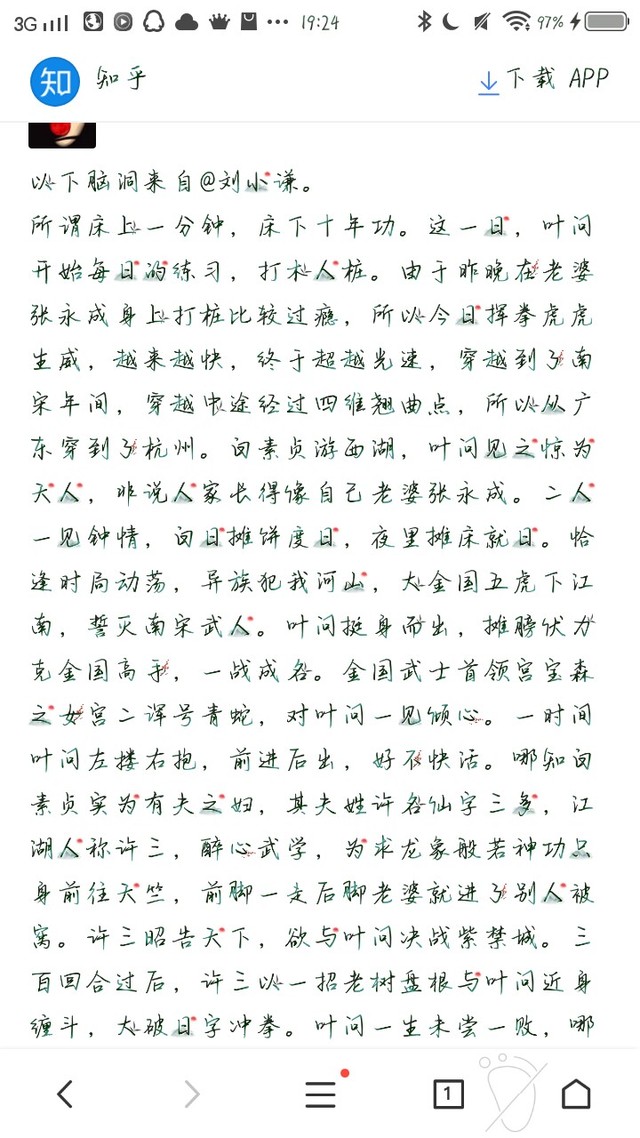 3G 19:24 97%
知 知乎 下载 APP
以下脑洞来自@刘小谦。
所谓床上一分钟，床下十年功。这一日，叶问
开始每日的练习，打木人桩。由于昨晚在老婆
张永成身上打桩比较过瘾，所以今日挥拳虎虎
生威，越来越快，终于超越光速，穿越到了南
宋年间，穿越中途经过四维翘曲点，所以从广
东穿到了杭州。白素贞游西湖，叶问见之惊为
天人，非说人家长得像自己老婆张永成。二人
一见钟情，白日摊饼度日，夜里摊床就日。恰
逢时局动荡，异族犯我河山，大金国五虎下江
南，誓灭南宋武人。叶问挺身而出，摊膀伏力
克金国高手，一战成名。金国武士首领宫宝森
之女宫二诨号青蛇，对叶问一见倾心。一时间
叶问左搂右抱，前进后出，好不快活。哪知白
素贞实为有夫之妇，其夫姓许名仙字三多，江
湖人称许三，醉心武学，为求龙象般若神功只
身前往天竺，前脚一走后脚老婆就进了别人被
窝。许三昭告天下，欲与叶问决战紫禁城。三
百回合过后，许三以一招老树盘根与叶问近身
缠斗，大破日字冲拳。叶问一生未尝一败，哪
1